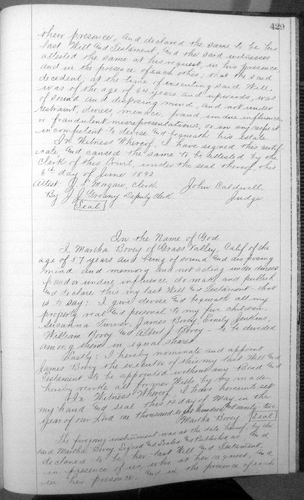 429
their presence, and declared the same to be his
last Will and Testament, and the said witnesses
attested the same at his request, in his presence
and in the presence of each other; that the said
decedent, at the time of executing said Will,
was of the age of 64 years and upwards, was
of sound and disposing mind, and not under
restraint, duress menace, fraud undue influence
or fraudulent misrepresentations, or in any respect
incompetent to devise and bequeath his estate.
In Witness Whereof, I have signed this certifi-
cate and caused the same to be attested by the
Clerk of this Court, under the seal thereof this
6th day of June 1892
Attest Clerk John Caldwell
By Deputy Clerk. Judge
Seal
In the Name of God
I Martha Berry of Grass Valley, Calif of the
age of 57 years and being of sound and disposing
mind and memory and not acting under duress
fraud or under influence do make and publish
and declare this my last Will and Testament that
is to say: I give devise and bequeath all my
property real and personal to my five children
Susanna James Berry, Emily
William Berry and Albert J. Berry. To be divided
among them in equal shares
Lastly: I hereby nominate and appoint
James Berry the executor of this my last Will and
Testament to be appointed without any Bond and
hereby revoke all former Wills by me made.
In Witness Whereof, I have hereunto set
my hand and seal this day of May in the
year of our Lord one thousand eight hundred and ninety
Martha Berry Seal
The foregoing instrument was at the date hereof by the
said Martha Berry signed and sealed and published and
declared to be her last Will and Testament
in presence of us, who at her request, and
in her presence and in the presence of each